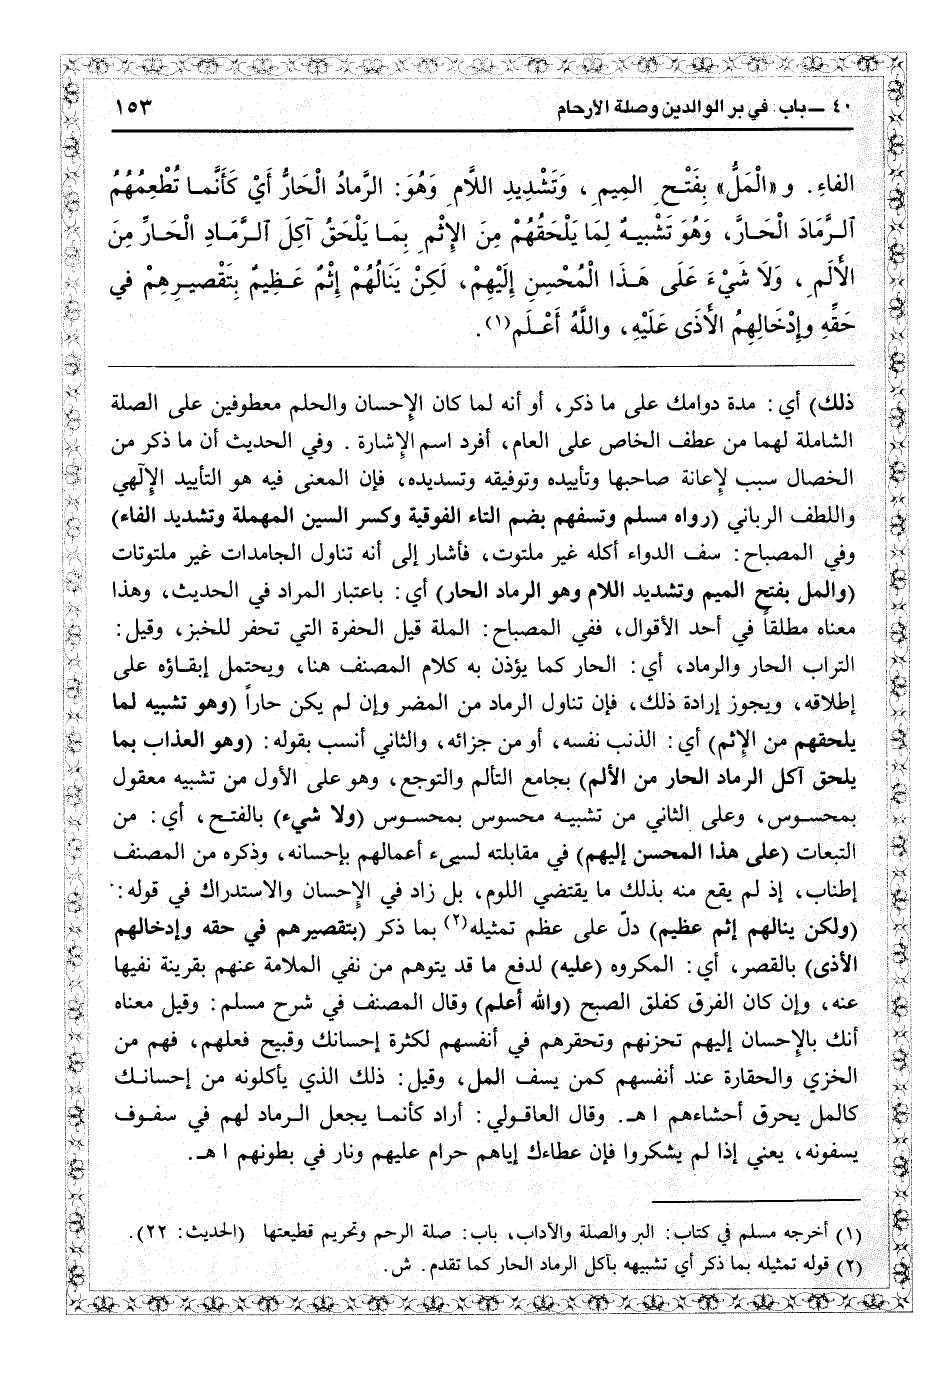 ٤٠ ــ باب: في بر الوالدين وصلة الأرحام ١٥٣
الفاءِ. و «الْمَلُّ» بِفَتْحِ المِيمِ، وَتَشْدِيدِ اللَّامِ وَهُوَ: الرَّمادُ الْحَارُّ أَيْ كَأَنَّما تُطْعِمُهُمُ
الرَّمَادَ الْحَارَّ، وَهُوَ تَشْبِيهٌ لِمَا يَلْحَقُهُمْ مِنَ الإِثْمِ بِمَا يَلْحَقُ آكِلَ الرَّمَادِ الْحَارِّ مِنَ
الأَلَمِ، وَلَا شَيْءَ عَلَى هَذَا الْمُحْسِنِ إِلَيْهِمْ، لَكِنْ يَنَالُهُمْ إِثْمٌ عَظِيمٌ بِتَقْصِيرِهِمْ في
حَقِّهِ وإِدْخَالِهِمُ الأَذَى عَلَيْهِ، واللَّهُ أَعْلَم(١).
ذلك) أي: مدة دوامك على ما ذكر، أو أنه لما كان الإِحسان والحلم معطوفين على الصلة
الشاملة لهما من عطف الخاص على العام، أفرد اسم الإِشارة. وفي الحديث أن ما ذكر من
الخصال سبب لإِعانة صاحبها وتأييده وتوفيقه وتسديده، فإن المعنى فيه هو التأييد الإِلٰهي
واللطف الرباني (رواه مسلم وتسفهم بضم التاء الفوقية وكسر السين المهملة وتشديد الفاء)
وفي المصباح: سف الدواء أكله غير ملتوت، فأشار إلى أنه تناول الجامدات غير ملتوتات
(والمل بفتح الميم وتشديد اللام وهو الرماد الحار) أي: باعتبار المراد في الحديث، وهذا
معناه مطلقاً في أحد الأقوال، ففي المصباح: الملة قيل الحفرة التي تحفر للخبز، وقيل:
التراب الحار والرماد، أي: الحار كما يؤذن به كلام المصنف هنا، ويحتمل إبقاؤه على
إطلاقه، ويجوز إرادة ذلك، فإن تناول الرماد من المضر وإن لم يكن حاراً (وهو تشبيه لما
يلحقهم من الإِثم) أي: الذنب نفسه، أو من جزائه، والثاني أنسب بقوله: (وهو العذاب بما
يلحق آكل الرماد الحار من الألم) بجامع التألم والتوجع، وهو على الأول من تشبيه معقول
بمحسوس، وعلى الثاني من تشبيه محسوس بمحسوس (ولا شيء) بالفتح، أي: من
التبعات (على هذا المحسن إليهم) في مقابلته لسيىء أعمالهم بإحسانه، وذكره من المصنف
إطناب، إذ لم يقع منه بذلك ما يقتضي اللوم، بل زاد في الإِحسان والاستدراك في قوله:
(ولكن ينالهم إثم عظيم) دلّ على عظم تمثيله(٢) بما ذكر (بتقصيرهم في حقه وإدخالهم
الأذى) بالقصر، أي: المكروه (عليه) لدفع ما قد يتوهم من نفي الملامة عنهم بقرينة نفيها
عنه، وإن كان الفرق كفلق الصبح (والله أعلم) وقال المصنف في شرح مسلم: وقيل معناه
أنك بالإِحسان إليهم تحزنهم وتحقرهم في أنفسهم لكثرة إحسانك وقبيح فعلهم، فهم من
الخزي والحقارة عند أنفسهم كمن يسف المل، وقيل: ذلك الذي يأكلونه من إحسانك
كالمل يحرق أحشاءهم ا هـ. وقال العاقولي: أراد كأنما يجعل الرماد لهم في سفوف
يسفونه، يعني إذا لم يشكروا فإن عطاءك إياهم حرام عليهم ونار في بطونهم ا هـ.
(١) أخرجه مسلم في كتاب: البر والصلة والآداب، باب: صلة الرحم وتحريم قطيعتها (الحديث: ٢٢).
(٢) قوله تمثيله بما ذكر أي تشبيهه بآكل الرماد الحار كما تقدم. ش.